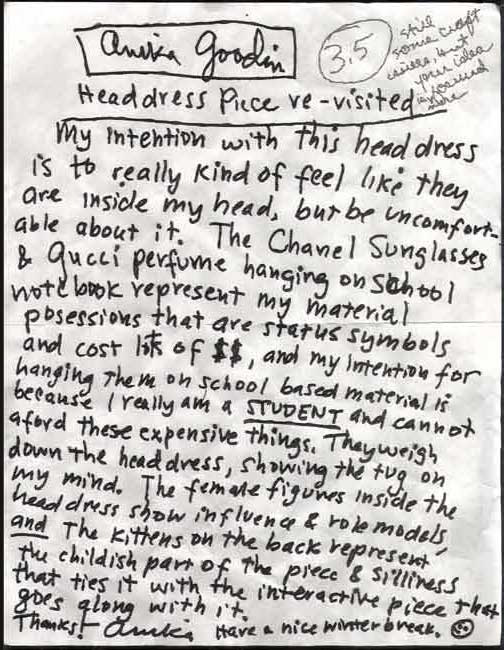 Anika Goodin
3.5
still
some craft
issues, but
your idea
is
more
Headdress Piece re-visited
My intention with this headdress
is to really kind of feel like they
are inside my head, but be uncomfort-
able about it. The Chanel Sunglasses
& Gucci perfume hanging on school
notebook represent my material
posessions that are status symbols
and cost lots of $$, and my intention for
hanging them on school based material is
because I really am a STUDENT and cannot
aford these expensive things. They weigh
down the headdress, showing the tug on
my mind. The female figures inside the
headdress show influence & role models,
and The Kittens on the back represent
the childish part of the piece & silliness
that ties it with the interactive piece that
goes along with it.
Thanks! Anika Have a nice winter break.